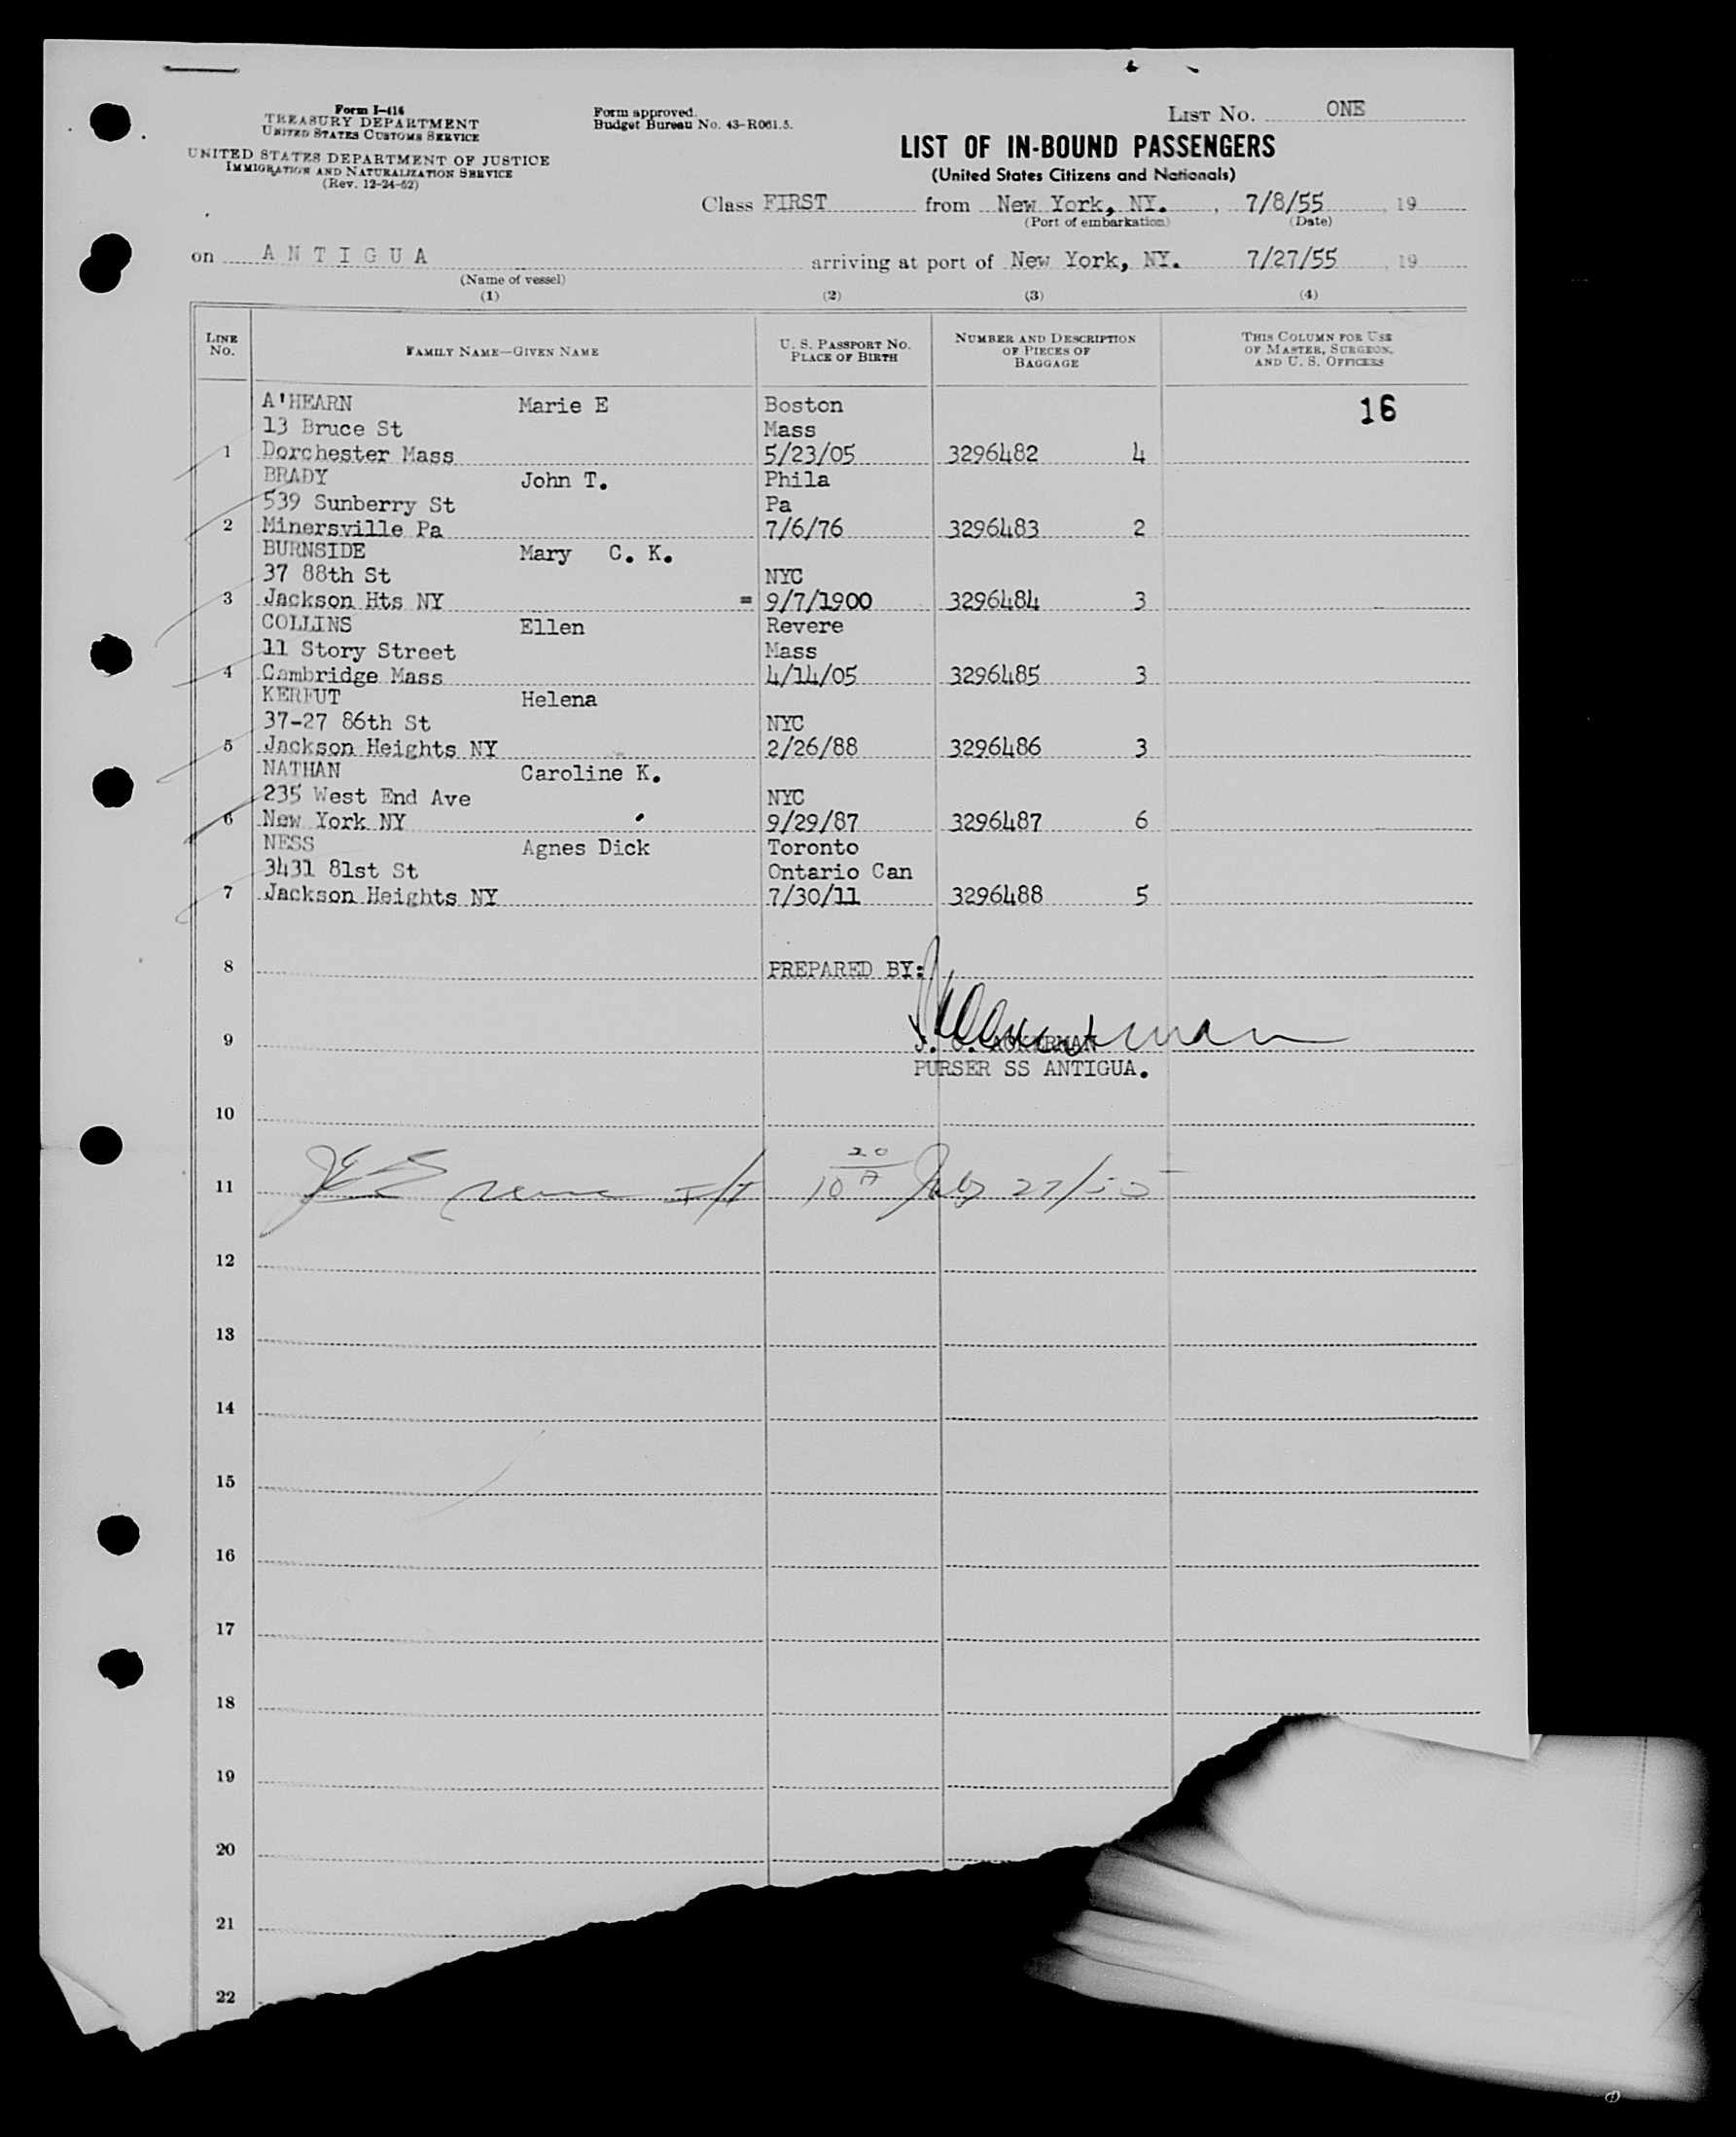 Form I-416
TREASURY DEPARTMENT
UNITED STATES CUSTOMS SERVICE
UNITED STATES DEPARTMENT OF JUSTICE
IMMIGRATION AND NATURALIZATION SERVICE
(Rev. 12-24-52)
Form approved.
Budget Bureau No. 43-R061.5.
LIST NO. ONE
LIST OF IN-BOUND PASSENGERS
(United States Citizens and Nationals)
Class FIRST from New York, NY. , 7/8/55 , 19
(Port of embarkation) (Date)
on A N T I G U A arriving at port of New York, NY. 7/27/55 , 19
(Name of vessel)
(1) (2) (3) (4)
LINE NO. FAMILY NAME—GIVEN NAME U. S. PASSPORT NO. PLACE OF BIRTH NUMBER AND DESCRIPTION OF PIECES OF BAGGAGE THIS COLUMN FOR USE OF MASTER, SURGEON, AND U. S. OFFICERS
A'HEARN Marie E Boston 16
13 Bruce St Mass
1 Dorchester Mass 5/23/05 3296482 4
BRADY John T. Phila
539 Sunberry St Pa
2 Minersville Pa 7/6/76 3296483 2
BURNSIDE Mary C. K.
37 88th St NYC
3 Jackson Hts NY = 9/7/1900 3296484 3
COLLINS Ellen Revere
11 Story Street Mass
4 Cambridge Mass 4/14/05 3296485 3
KERFUT Helena
37-27 86th St NYC
5 Jackson Heights NY 2/26/88 3296486 3
NATHAN Caroline K.
235 West End Ave NYC
6 New York NY 9/29/87 3296487 6
NESS Agnes Dick Toronto
3431 81st St Ontario Can
7 Jackson Heights NY 7/30/11 3296488 5
8 PREPARED BY:
9 ACKERMAN
PURSER SS ANTIGUA.
10
11 10 20 A July 27/55
12
13
14
15
16
17
18
19
20
21
22